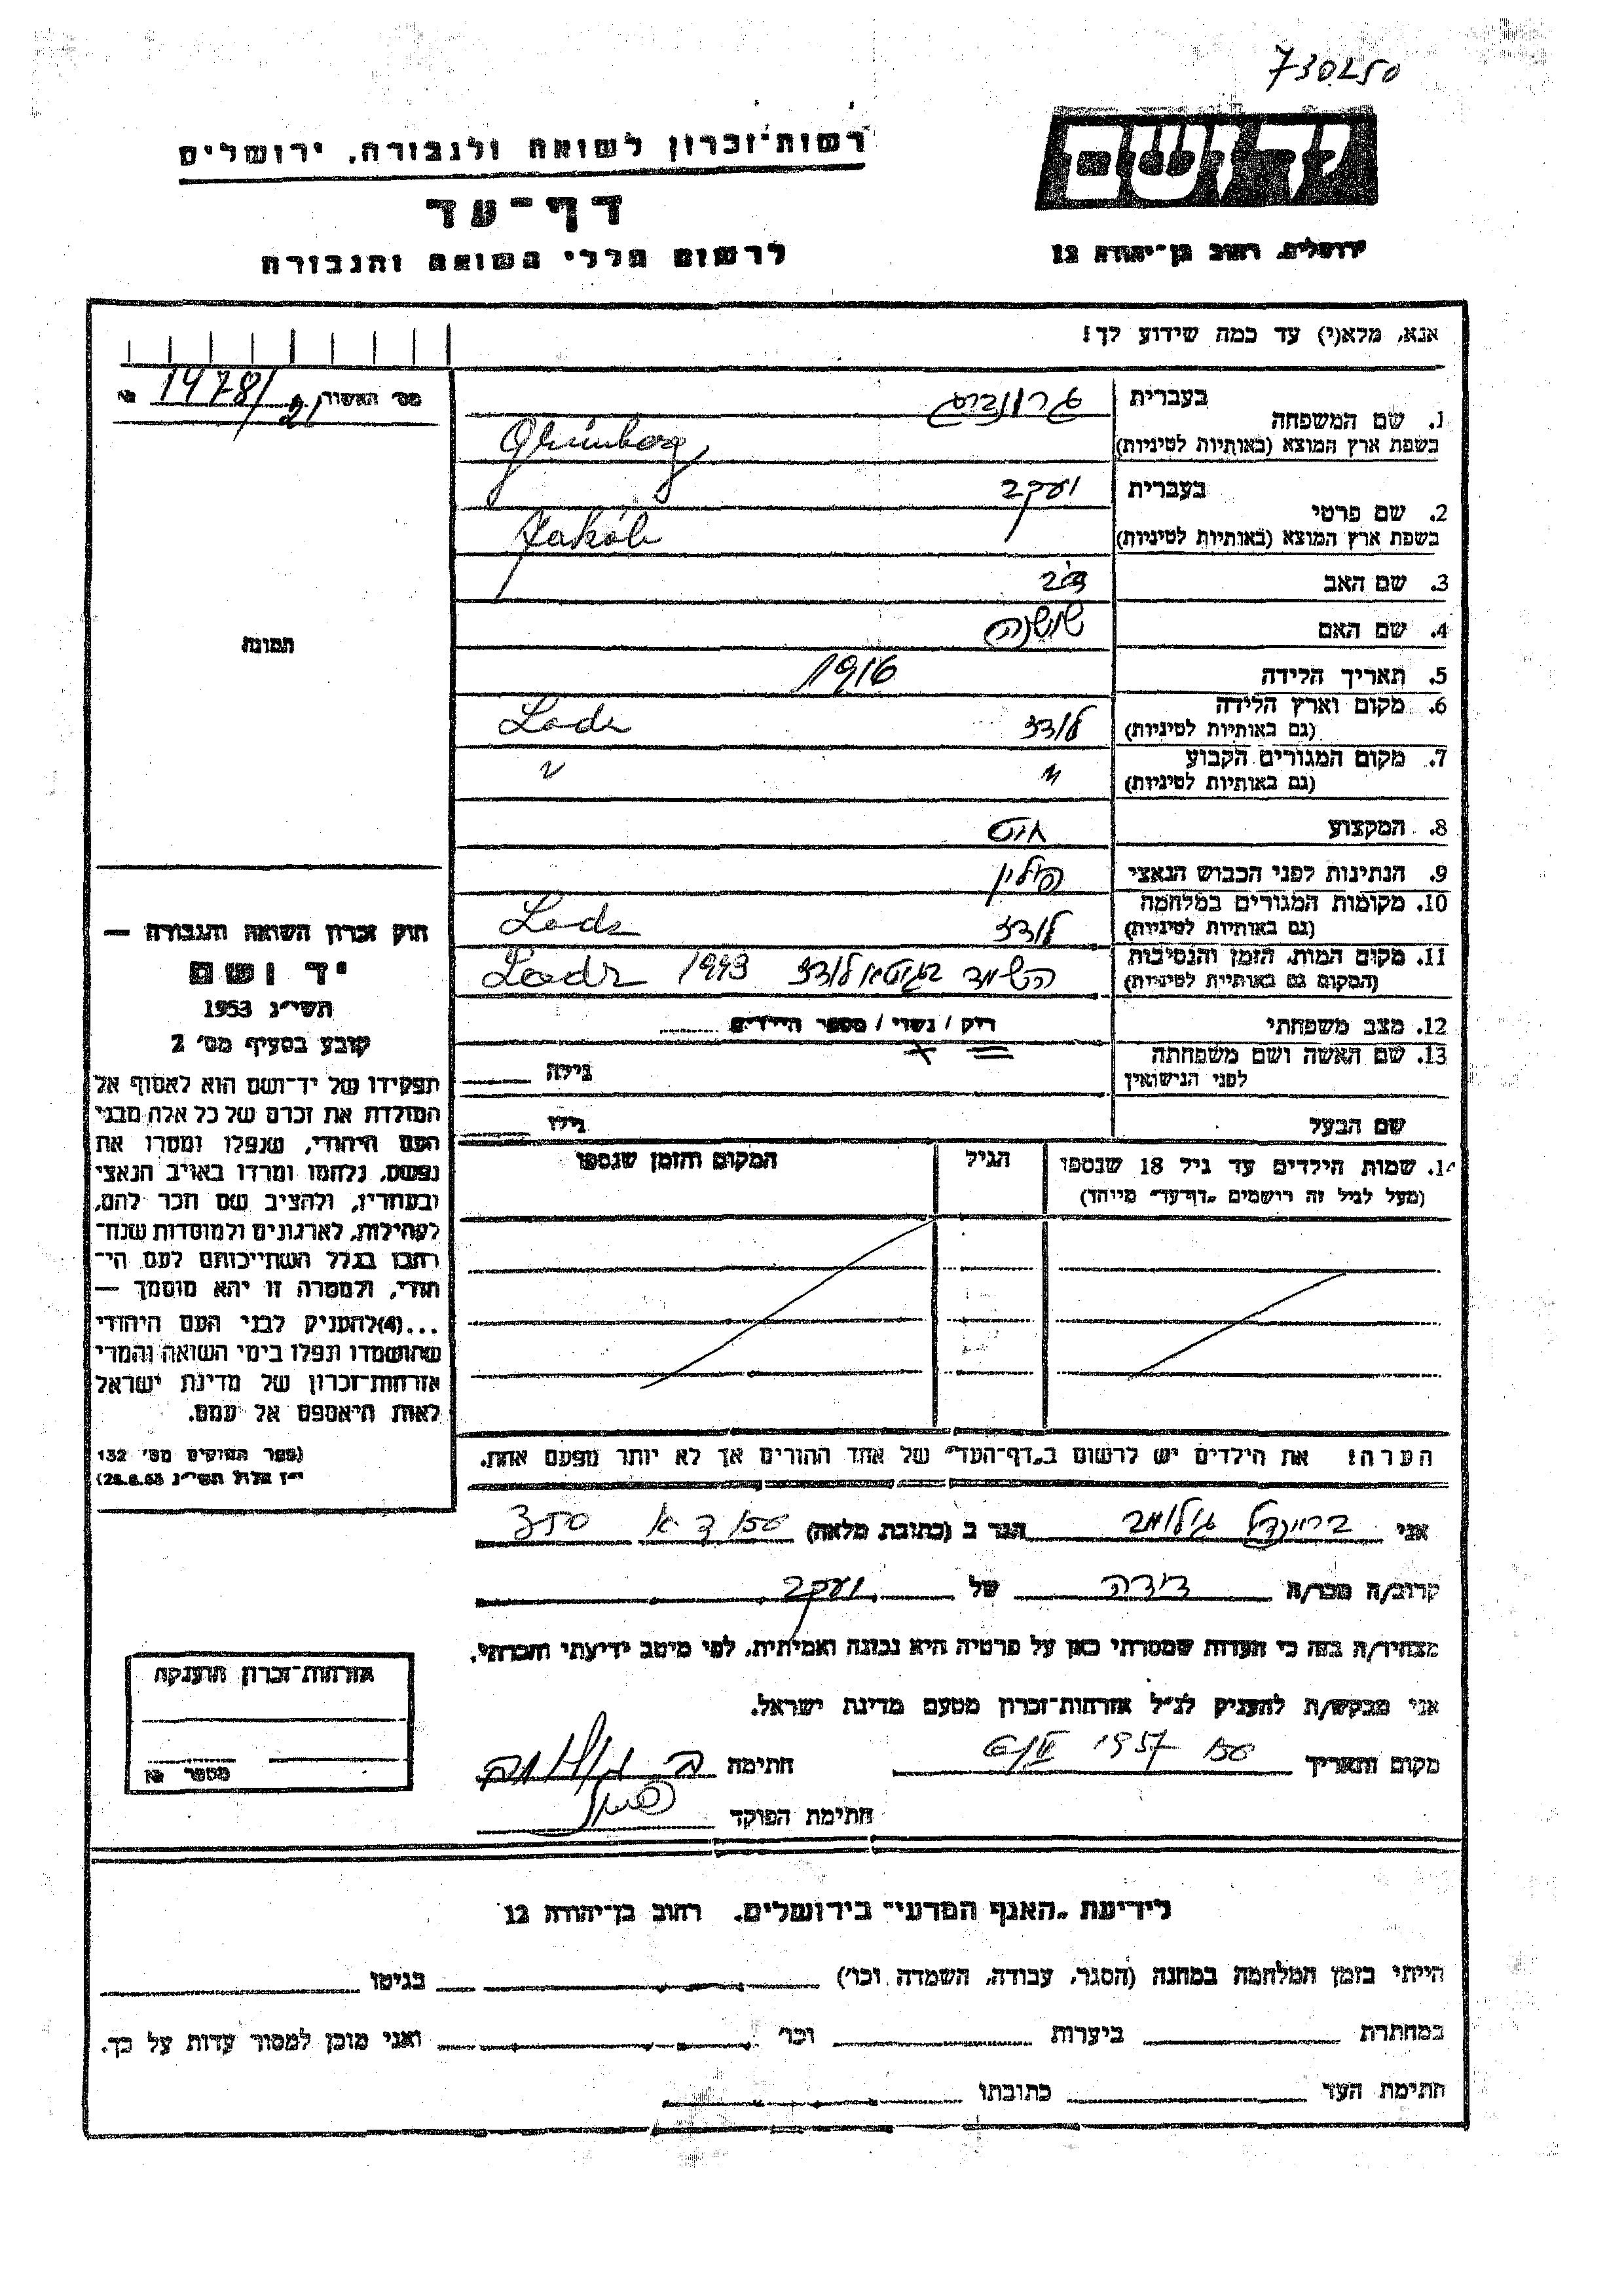 730250
רשות-זכרון לשואה ולגבורה, ירושלים
דף-עד
לרשום חללי השואה והגבורה
יד ושם
ירושלים, רחוב בן-יהודה 12
אנא, מלא(י) עד כמה שידוע לך!
מס' האשור 1478/21 №
1. שם המשפחה בעברית גרונברג
בשפת ארץ המוצא (באותיות לטיניות) Grünberg
2. שם פרטי בעברית יעקב
בשפת ארץ המוצא (באותיות לטיניות) Jakób
3. שם האב
4. שם האם שושנה
5. תאריך הלידה 1916
6. מקום וארץ הלידה לודז Lodz
(גם באותיות לטיניות)
7. מקום המגורים הקבוע " "
(גם באותיות לטיניות)
8. המקצוע חיט
9. הנתינות לפני הכבוש הנאצי פולין
10. מקומות המגורים במלחמה לודז Lodz
(גם באותיות לטיניות)
11. מקום המות, הזמן והנסיבות בגיטא לודז 1943 Lodz
(המקום גם באותיות לטיניות)
12. מצב משפחתי רוק / נשוי / מספר הילדים
13. שם האשה ושם משפחתה גילה
לפני הנישואין
שם הבעל גילו
14. שמות הילדים עד גיל 18 שנספו הגיל המקום והזמן שנספו
(מעל לגיל זה רושמים "דף-עד" מיוחד)
הערה! את הילדים יש לרשום ב"דף-העד" של אחד ההורים אך לא יותר מפעם אחת.
תמונה
חוק זכרון השואה והגבורה —
יד ושם
תשי"ג 1953
קובע בסעיף מס' 2
תפקידו של יד-ושם הוא לאסוף אל
המולדת את זכרם של כל אלה מבני
העם היהודי, שנפלו ומסרו את
נפשם, נלחמו ומרדו באויב הנאצי
ובעוזריו, ולהציב שם וזכר להם,
לקהילות, לארגונים ולמוסדות שנח-
רבו בגלל השתייכותם לעם הי-
הודי, ולמטרה זו יהא מוסמך —
...(4) להעניק לבני העם היהודי
שהושמדו ונפלו בימי השואה והמרי
אזרחות-זכרון של מדינת ישראל
לאות היאספם אל עמם.
(ספר החוקים מס' 132
י"ז אלול תשי"ג 28.8.53)
אני בריינדל הגר ב (כתובת מלאה)
קרוב/ה מכר/ה דודה של יעקב
מצהיר/ה בזה כי העדות שמסרתי כאן על פרטיה היא נכונה ואמיתית, לפי מיטב ידיעתי והכרתי.
אני מבקש/ת להעניק לנ"ל אזרחות-זכרון מטעם מדינת ישראל.
מקום ותאריך 1957 חתימה
חתימת הפוקד
אזרחות-זכרון הוענקה
מספר №
לידיעת "האגף המדעי" בירושלים, רחוב בן-יהודה 12
הייתי בזמן המלחמה במחנה (הסגר, עבודה, השמדה וכו') בגיטו
במחתרת ביערות וכו' ואני מוכן למסור עדות על כך.
חתימת העד כתובתו